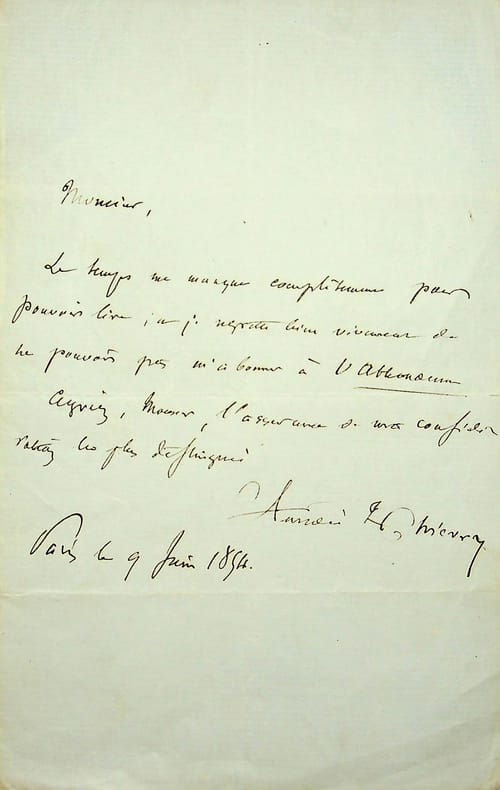 Monsieur,
Le temps me manque complètement pour
pouvoir lire, et je regrette bien vivement de
ne pouvoir pas m'abonner à l'Athenæum
Agréez, Monsieur, l'assurance de ma considé
ration la plus distinguée
Amédée Thierry
Paris le 9 Juin 1854.